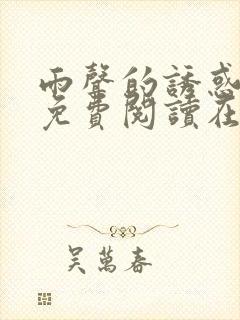 雨聲的誘惑
免費閱讀在
吳萬春